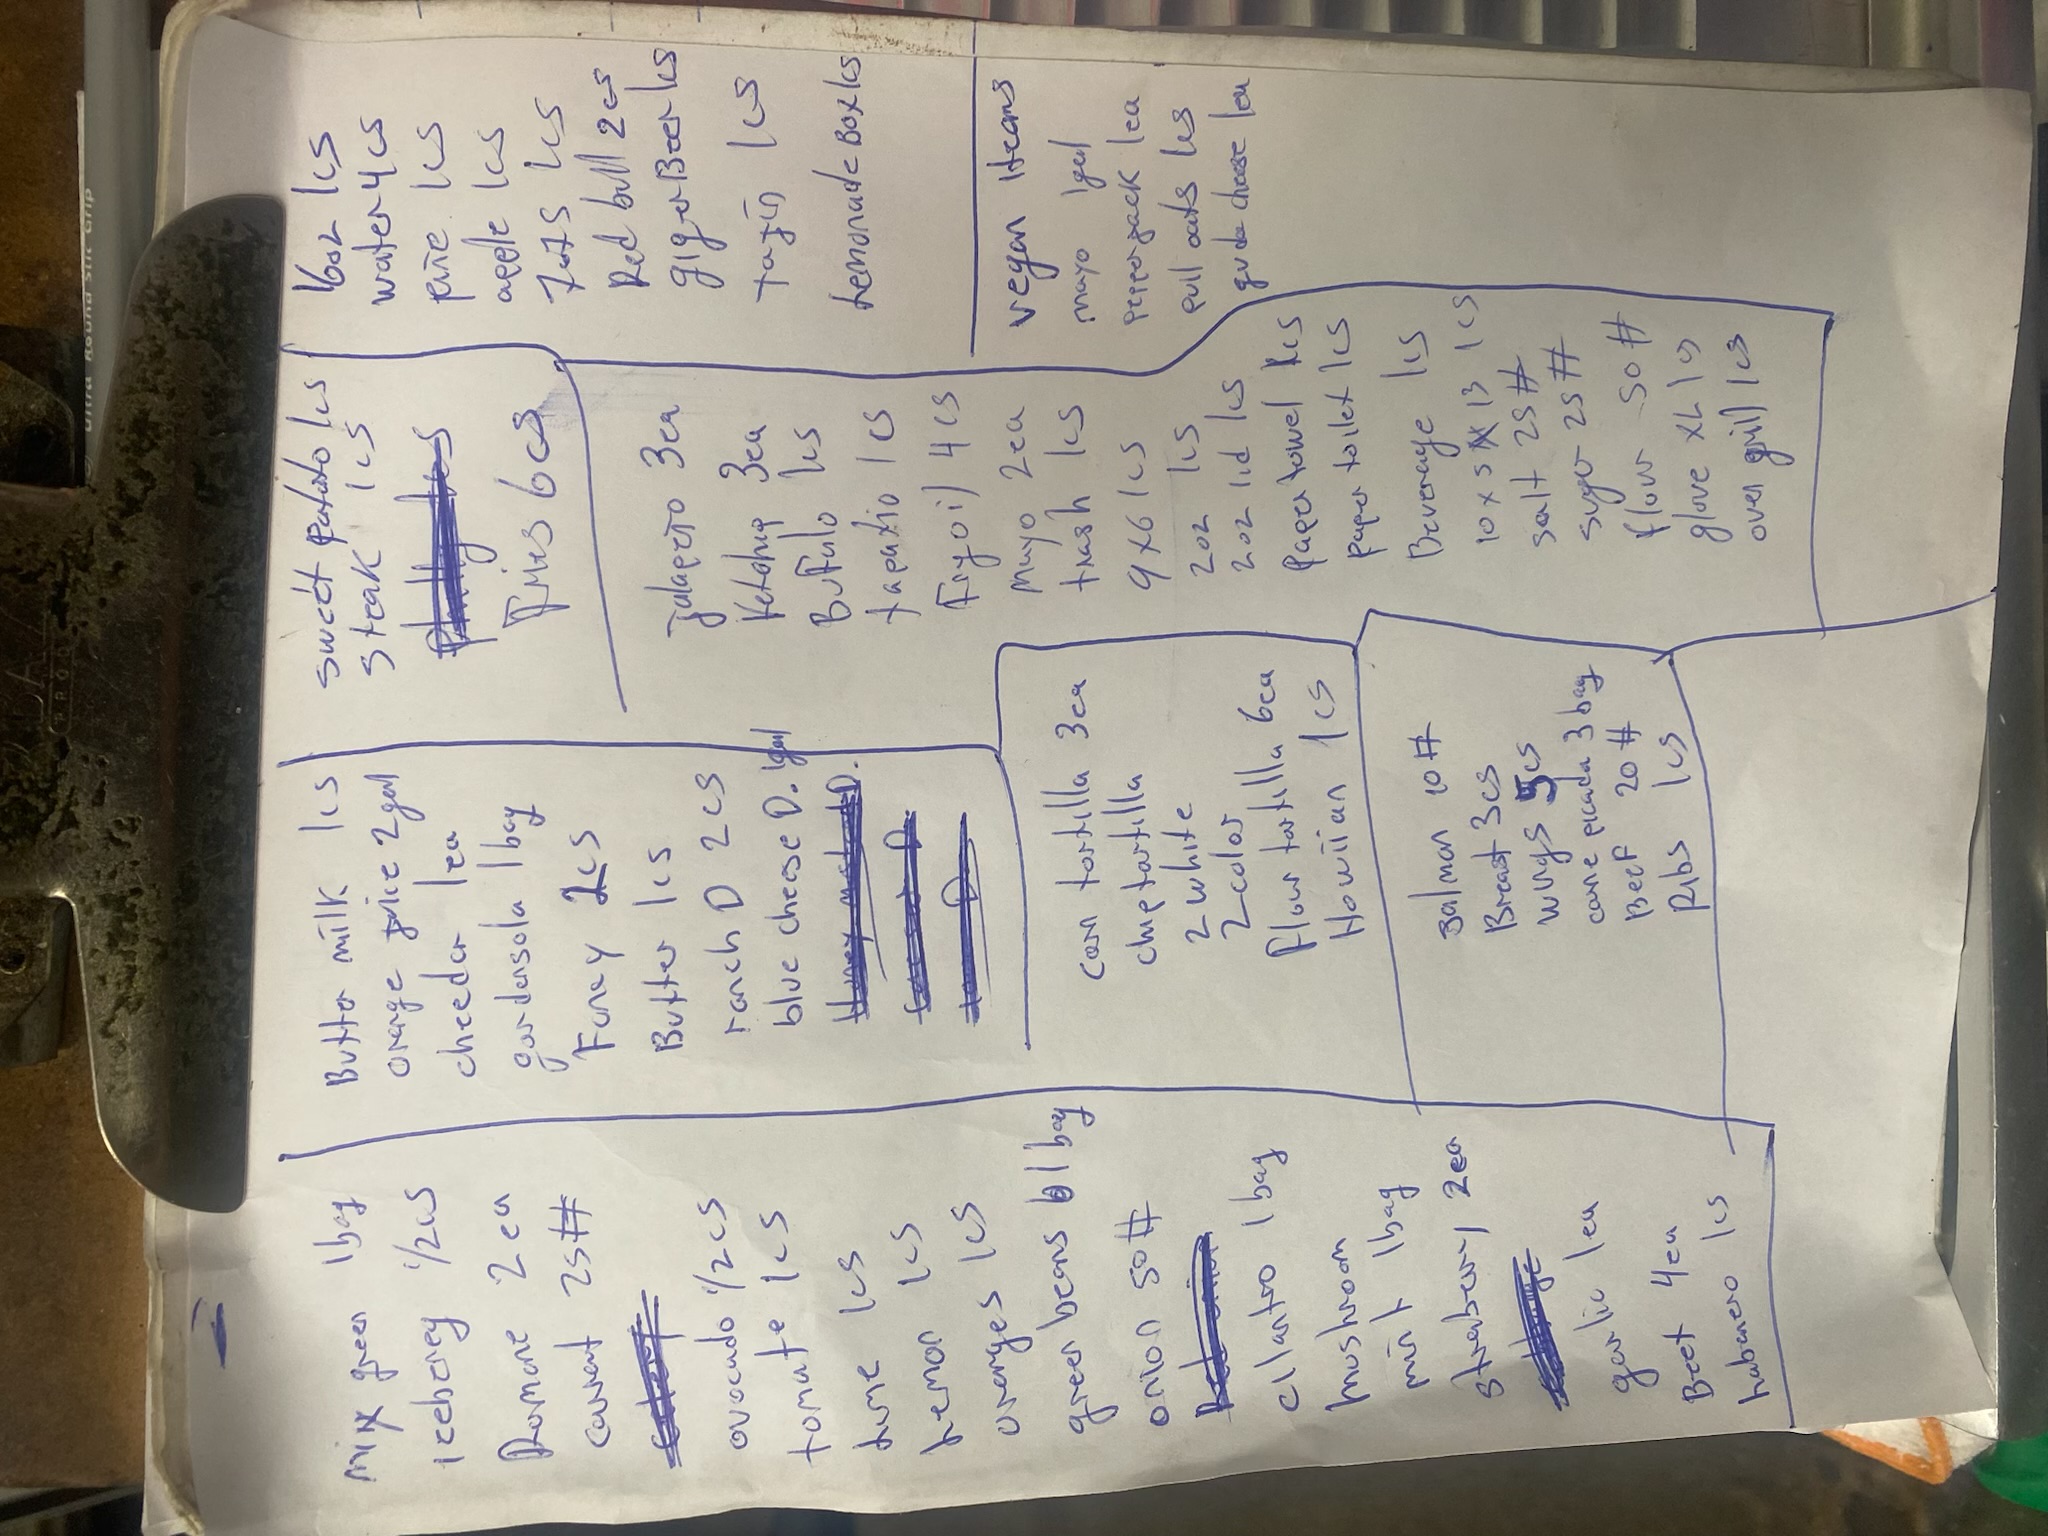 mix green 1bag
iceberg 1/2cs
Romane 2ea
carrot 25#
avocado 1/2cs
tomate 1cs
Lime 1cs
Lemon 1cs
oranges 1cs
green beans 1bag
onion 50#
cilantro 1bag
mushroom
mint 1bag
strwberry 2ea
garlic 1ea
Beet 4ea
habanero 1cs
Butter milk 1cs
orange juice 2gal
cheeder 1ea
gardensola 1bag
Fancy 2cs
Butter 1cs
ranch D 2cs
blue cheese D. 1gal
corn tortilla 3ea
chip tortilla
2 white
2 color
Flour tortilla 6ea
Howiian 1cs
Salmon 10#
Breast 3cs
wings 5cs
carne picada 3bag
Beef 20#
Ribs 1cs
sweet potato 1cs
steak 1cs
Fries 6cs
Jalapeño 3ea
Ketchup 3ea
Buffalo 1cs
tapatio 1cs
Fry oil 4cs
mayo 2ea
trash 1cs
9x6 1cs
2oz 1cs
2oz lid 1cs
paper towel 1cs
paper toilet 1cs
Beverage 1cs
10x5x13 1cs
salt 25#
suger 25#
flour 50#
glove XL 1cs
oven grill 1cs
16oz 1cs
water 4cs
piñe 1cs
apple 1cs
Red bull 2cs
giger Beer 1cs
tayin 1cs
Lemonade Box 1cs
vegan items
mayo 1gal
pepperjack 1ea
pull oats 1cs
guda cheese 1ea